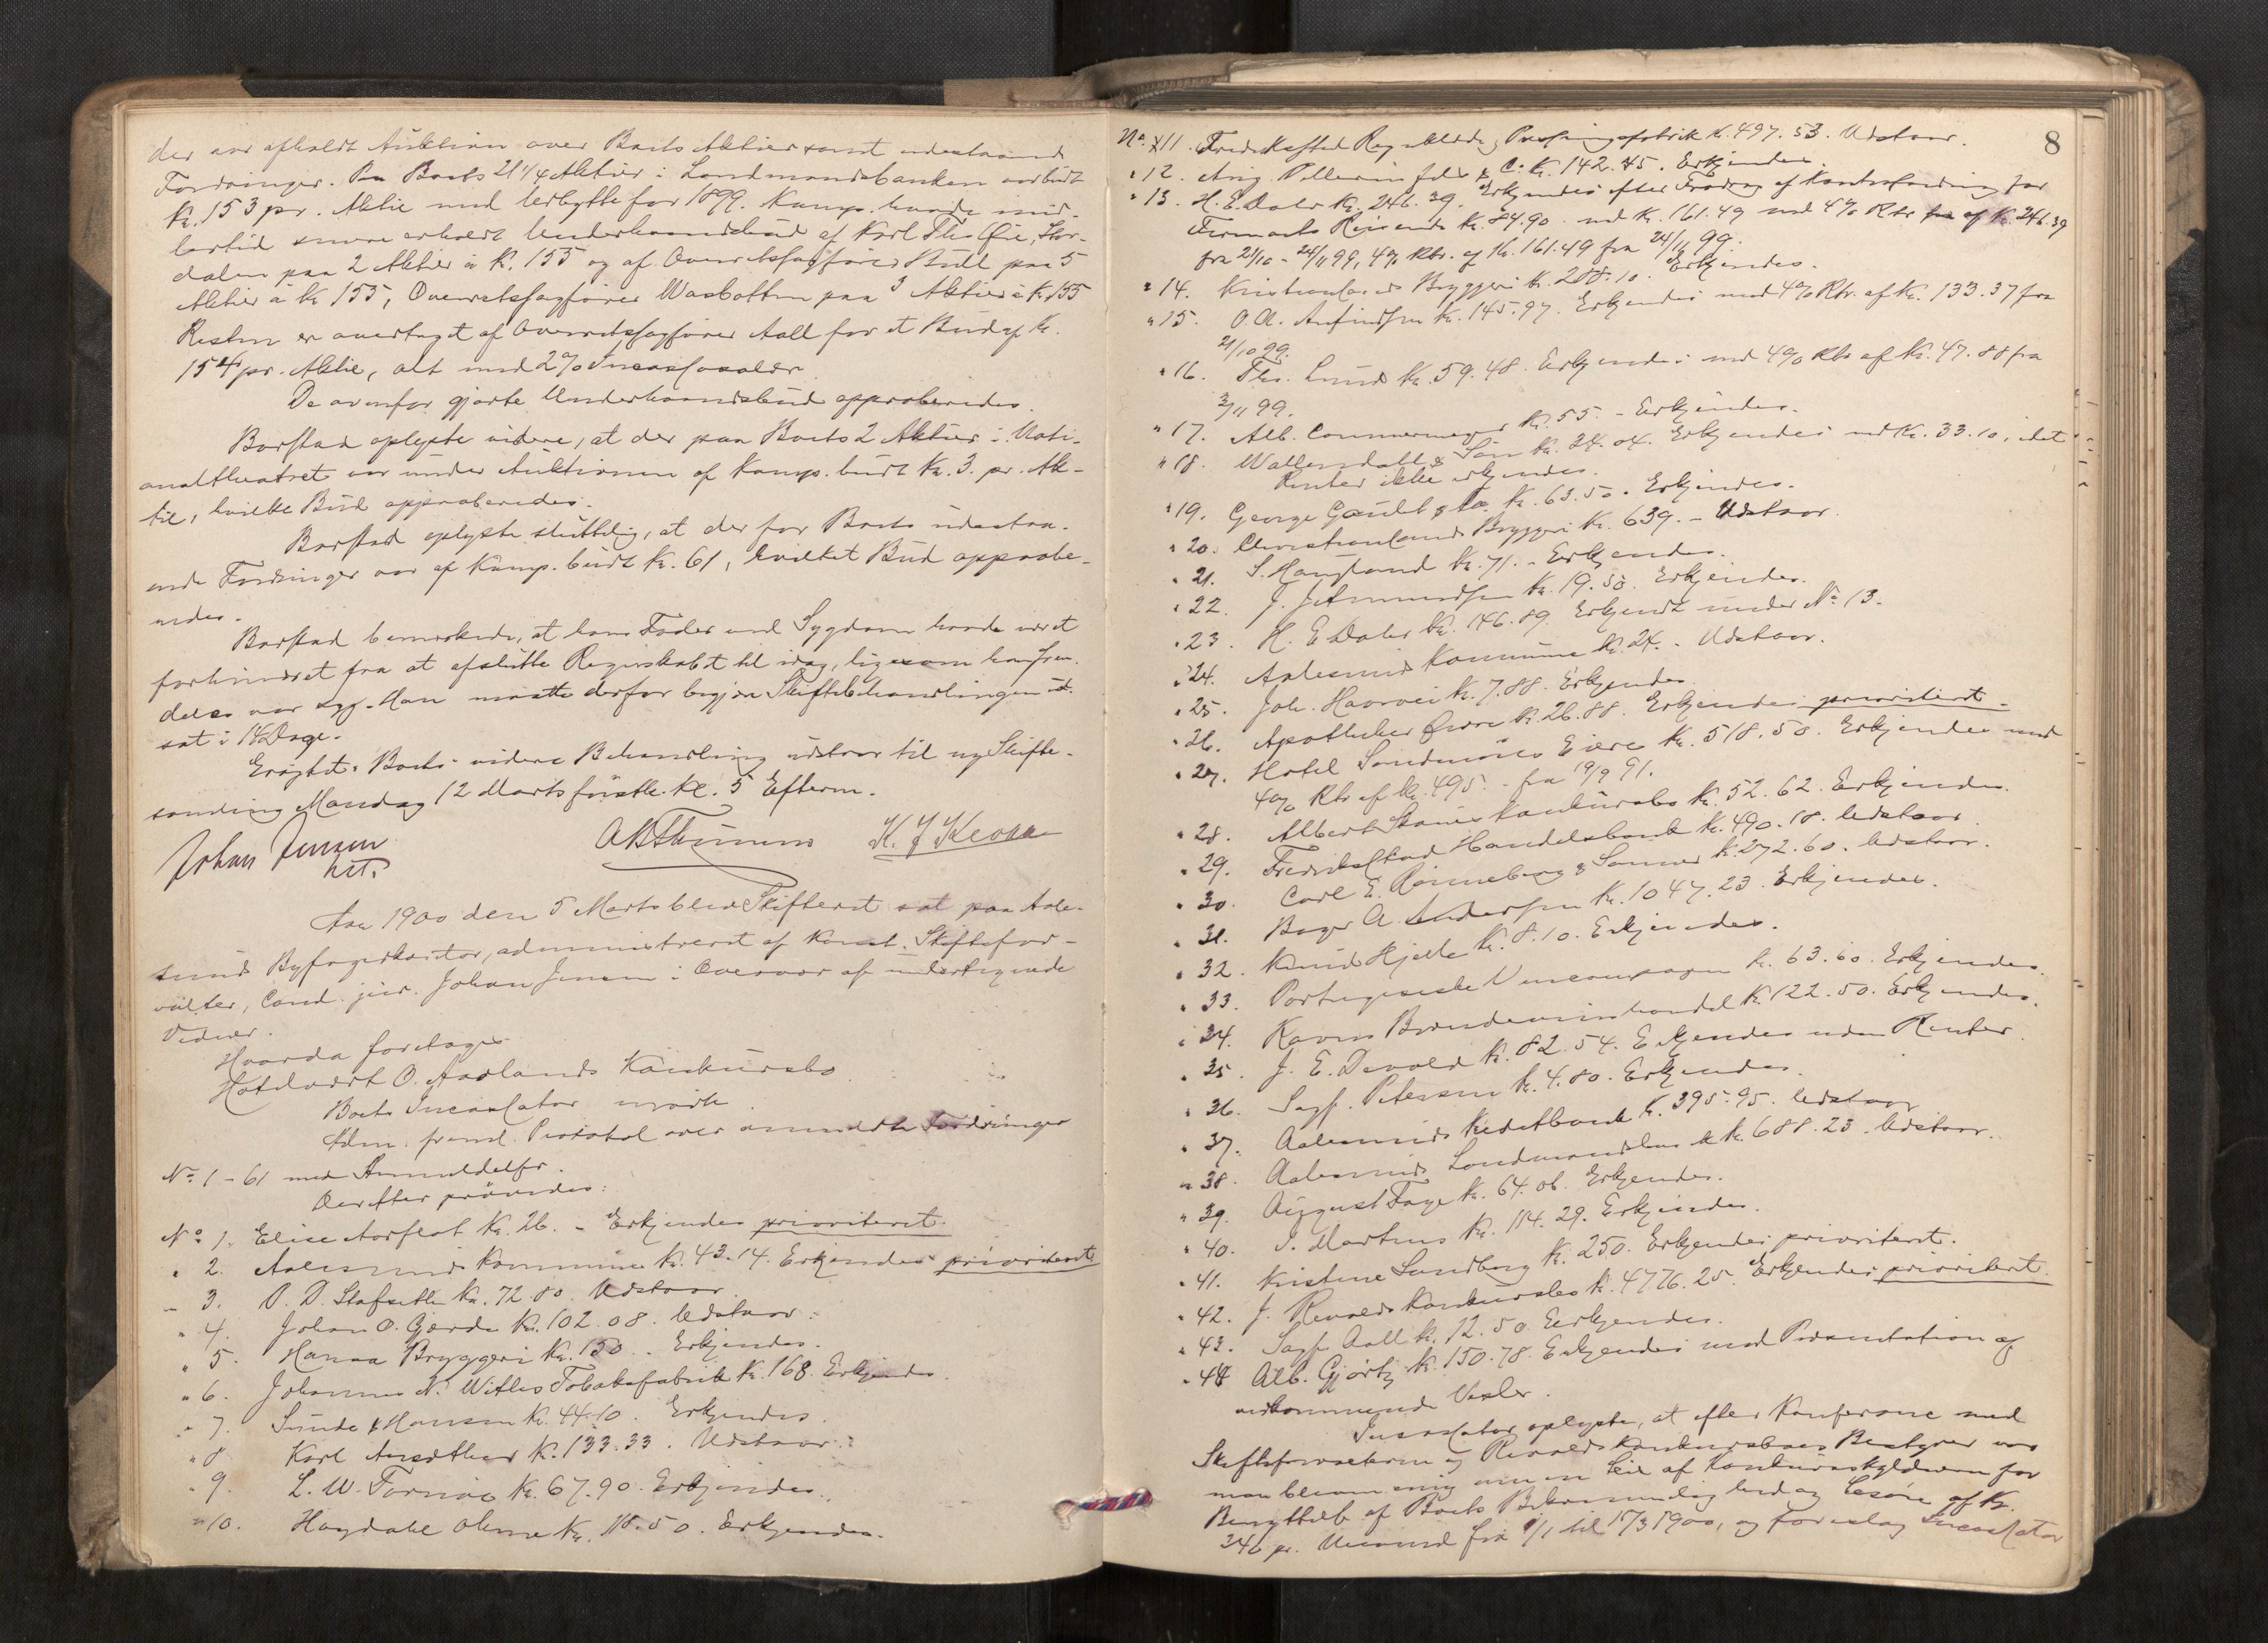 der var afholdt Auktion over Boets Aktier samt udestaaende
Fordringer. Paa Boets 21 1/4 Aktier i Landmandsbanken var budt
Kr. 153 pr. Aktie med Udbytte for 1899. Kamp. havde imid-
lertid senere erholdt Underhaandsbud af Karl Ths. Øie, Stor-
dalen paa 2 Aktier à Kr. 155 og af Overretssagfører Bull paa 5
Aktier à Kr 155, Overretssagfører Wasbotten paa 3 Aktier à Kr. 155
Resten er overtaget af Overretssagfører Aall for et Bud af Kr.
154 pr. Aktie, alt med 2% Incassosalær.
De ovenfor gjorte Underhaandsbud approberedes.
Barstad oplyste videre, at der paa Boets 2 Aktier i Nati-
onaltheatret var under Auktionen af Kamp. budt Kr. 3. pr. Ak-
tie, hvilke Bud approberedes.
Barstad oplyste sluttelig, at der for Boets udestaa-
ende Fordringer var af Kamp. budt Kr. 61, hvilket Bud approbe-
redes.
Barstad bemærkede, at hans Fader ved Sygdom havde været
forhindret fra at afslutte Regnskabet til idag, ligesom han frem-
deles var syg. Han maatte derfor begjære Skiftebehandlingen ud-
sat i 14 Dage.
Eragtet: Boets videre Behandling udstaar til ny Skifte-
samling Mandag 12 Marts førstk. Kl. 5 Efterm.
Johan Jensen
kst.
A B Thunem K. J. Klokk
Aar 1900 den 5 Marts blev Skifteret sat paa Aale-
sunds Byfogedkontor, administreret af Konst. Skiftefor-
valter, Cand. jur. Johan Jensen i Overvær af undertegnede
Vidner.
Hvorda foretoges
Hotelvært O. Aadlands Konkursbo
Boets Incassator mødte.
Adm. freml. Protokol over anmeldte Fordringer
No. 1-61 med Anmeldelser.
Derefter prøvedes:
No. 1. Elise Aarflot Kr. 26. - Erkjendes prioriteret.
" 2. Aalesunds Kommune Kr. 43.14. Erkjendes prioriteret
- 3. P. D. Stafseth Kr. 72.80. Udstaar
" 4. Johan O. Gjærde Kr. 102.08. Udstaar.
" 5. Hansa Bryggeri Kr. 150.- Erkjendes.
" 6. Johannes N. Withs Tobaksfabrik Kr. 168. Erkjendes.
" 7. Sunde & Hansen Kr. 44.10. Erkjendes.
" 8 Karl Kr. 133.33. Udstaar.
" 9. L. W. Kr. 67.90. Erkjendes.
" 10. Høydahl Ohme Kr. 18.50. Erkjendes.
8
No. 11. Fredriksstad Kr. 497.53. Udstaar.
" 12. Aug. Pellerin fils & Co. Kr. 142.45. Erkjendes.
" 13. H. E. Dahls Kr. 246.39. Erkjendes efter Fradrag af Kontrafordring for
Firmaets Reisende Kr. 84.90 med Kr. 161.49 med 4% Rtr. af Kr. 246.39
fra 21/10 - 24/11 99, 4% Rtr. af Kr. 161.49 fra 24/11 99.
" 14. Kristiansunds Bryggeri Kr. 288.10. Erkjendes.
" 15. O. A. Kr. 145.97. Erkjendes med 4% Rtr. af Kr. 133.37 fra
21/10 99.
" 16. Ths. Lund Kr. 59.48. Erkjendes med 4% Rtr af Kr. 47.88 fra
3/11 99.
" 17. Alb. Cammermeyer Kr. 55. - Erkjendes.
" 18. Wallendahl & Søn Kr. 34.04. Erkjendes med Kr. 33.10, idet
Renter ikke erkjendes.
" 19. George Goulet & Co. Kr. 63.50. Erkjendes.
" 20. Christianssands Bryggeri Kr. 639. - Udstaar.
" 21. S. Haugland Kr. 71. - Erkjendes.
" 22. J. J. Kr. 19.50. Erkjendes.
" 23. H. E. Dahls Kr. 146.89 Erkjendt under No. 13.
" 24. Aalesunds Kommune Kr. 24. - Udstaar.
" 25. Joh. Kr. 7.88. Erkjendes.
" 26. Apotheker Øwre Kr. 26.88. Erkjendes prioriteret.
" 27. Hotel Søndmøres Eiere Kr. 518.50. Erkjendes med
4% Rtr af Kr. 495. - fra 19/9 91.
" 28. Albert Konkursbo Kr. 52.62. Erkjendes.
" 29. Fredriksstad Handelsbank Kr. 490.18. Udstaar.
" 30. Carl E. Rønneberg & Sønner Kr. 272.60. Udstaar.
" 31. Bager A. Andersen Kr. 1047.23. Erkjendes.
" 32. Knud Hjelle Kr. 8.10. Erkjendes.
" 33. Portugisiske Vincompagni Kr. 63.60. Erkjendes.
" 34. Ravns Brændevinshandel Kr. 122.50. Erkjendes.
" 35. J. E. Devold Kr. 82.54. Erkjendes uden Renter.
" 36. Sagf. Petersen Kr. 4.80. Erkjendes.
" 37. Aalesunds Kreditbank Kr. 395.95. Udstaar
" 38. Aalesunds Landmandsbank Kr. 688.23. Udstaar.
" 39. August Fage Kr. 64.06. Erkjendes.
" 40. J. Martens Kr. 114.29. Erkjendes.
" 41. Kristine Sandberg Kr. 250. Erkjendes prioriteret.
" 42. J. Revolds Konkursbo Kr. 4776.25. Erkjendes prioriteret.
" 43. Sagf. Aall Kr. 12.50. Erkjendes.
" 44 Alb. Gjørtz Kr. 150.78. Erkjendes mod Præsentation af
vedkommende Vexler.
Incassator oplyste, at efter Konferance med
Skifteforvalteren og Revolds Konkursboes Bestyrer var
man bleven enig om en Leie af Konkursskyldneren for
Benyttelse af Boets Beværtning og Løsøre af Kr.
346 pr. Maaned fra 1/1 til 15/3 1900, og foreslog Incassator